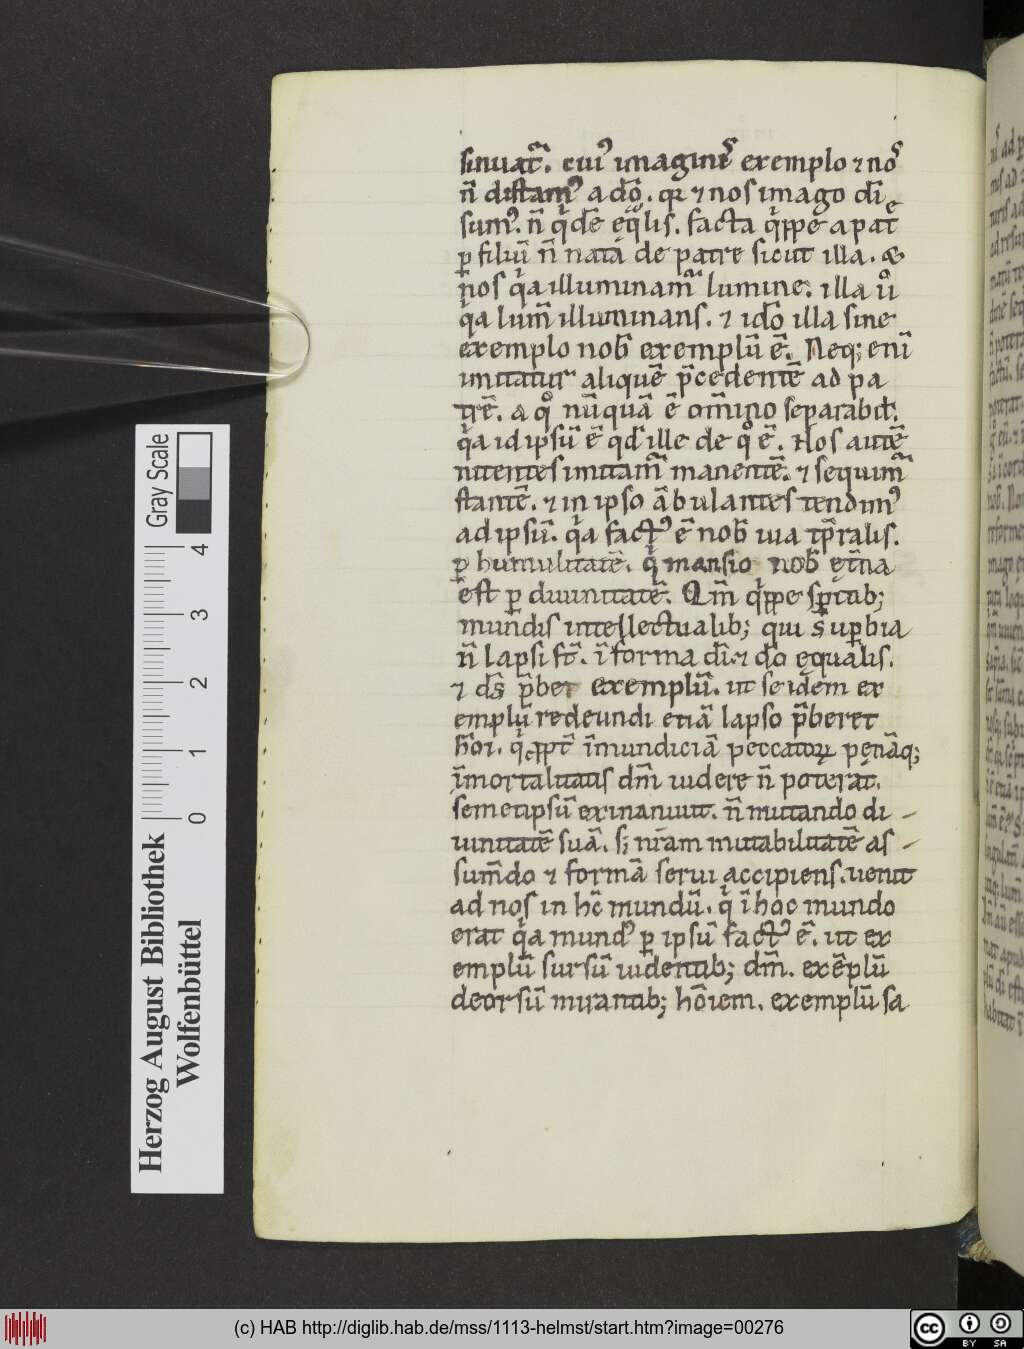 sinuat̃. cui᷒ imaginẽ exemplo ⁊ no᷒
ñ distam᷒ a dõ. qꝛ ⁊ nos imago dĩ
sum᷒. ñ qͥdẽ eq̃lis. facta qͥppe a pat̃e
ꝑ filiũ ñ nata de patre sicut illa. &
nos qͥa illuminam᷒ lumine. illa ũo
qͥa lum̃ illuminans. ⁊ idõ illa sine
exemplo nob̃ exemplũ ẽ. Neq; eni
imitatur aliquẽ p̃cedentẽ ad pa
trẽ. a qͦ nũquã ẽ om̃ino separabil̃.
qͥa id ipsũ ẽ qd̃ ille de qͦ ẽ. Nos autẽ
nitentes imitam᷒ manentẽ. ⁊ sequim᷒
stantẽ. ⁊ in ipso ãbulantes tendim᷒
ad ipsũ. qͥa fact᷒ ẽ nob̃ uia tp̃ralis.
ꝑ humilitatẽ. qͥ mansio nob̃ et̃na
est ꝑ diuinitatẽ. Qm̃ qͥppe sp̃itib;
mundis intellectualib; qui suꝑbia
ñ lapsi st̃. ĩ forma dĩ. ⁊ dõ equalis.
⁊ ds̃ p̃bet exemplũ. ut se idem ex
emplũ redeundi etiã lapso p̃beret
hõi. qͥ ꝓpt̃ ĩmundiciã peccatoꝝ penãq;
ĩmortalitatis dm̃ uidere ñ poterat.
semetipsũ exinaniuit. ñ mutando di-
uinitatẽ suã. s; nr̃am mutabilitatẽ as-
sum̃do ⁊ formã serui accipiens. uenit
ad nos in hc̃ mundũ. qͥ ĩ hoc mundo
erat qͥa mund᷒ ꝑ ipsũ fact᷒ ẽ. ut ex
emplũ sursũ uidentib; dm̃. exẽplũ
deorsũ mirantib; hõiem. exemplũ sa
Gray Scale
0 1 2 3 4
Herzog August Bibliothek
Wolfenbüttel
(c) HAB http://diglib.hab.de/mss/1113-helmst/start.htm?image=00276
cc BY SA